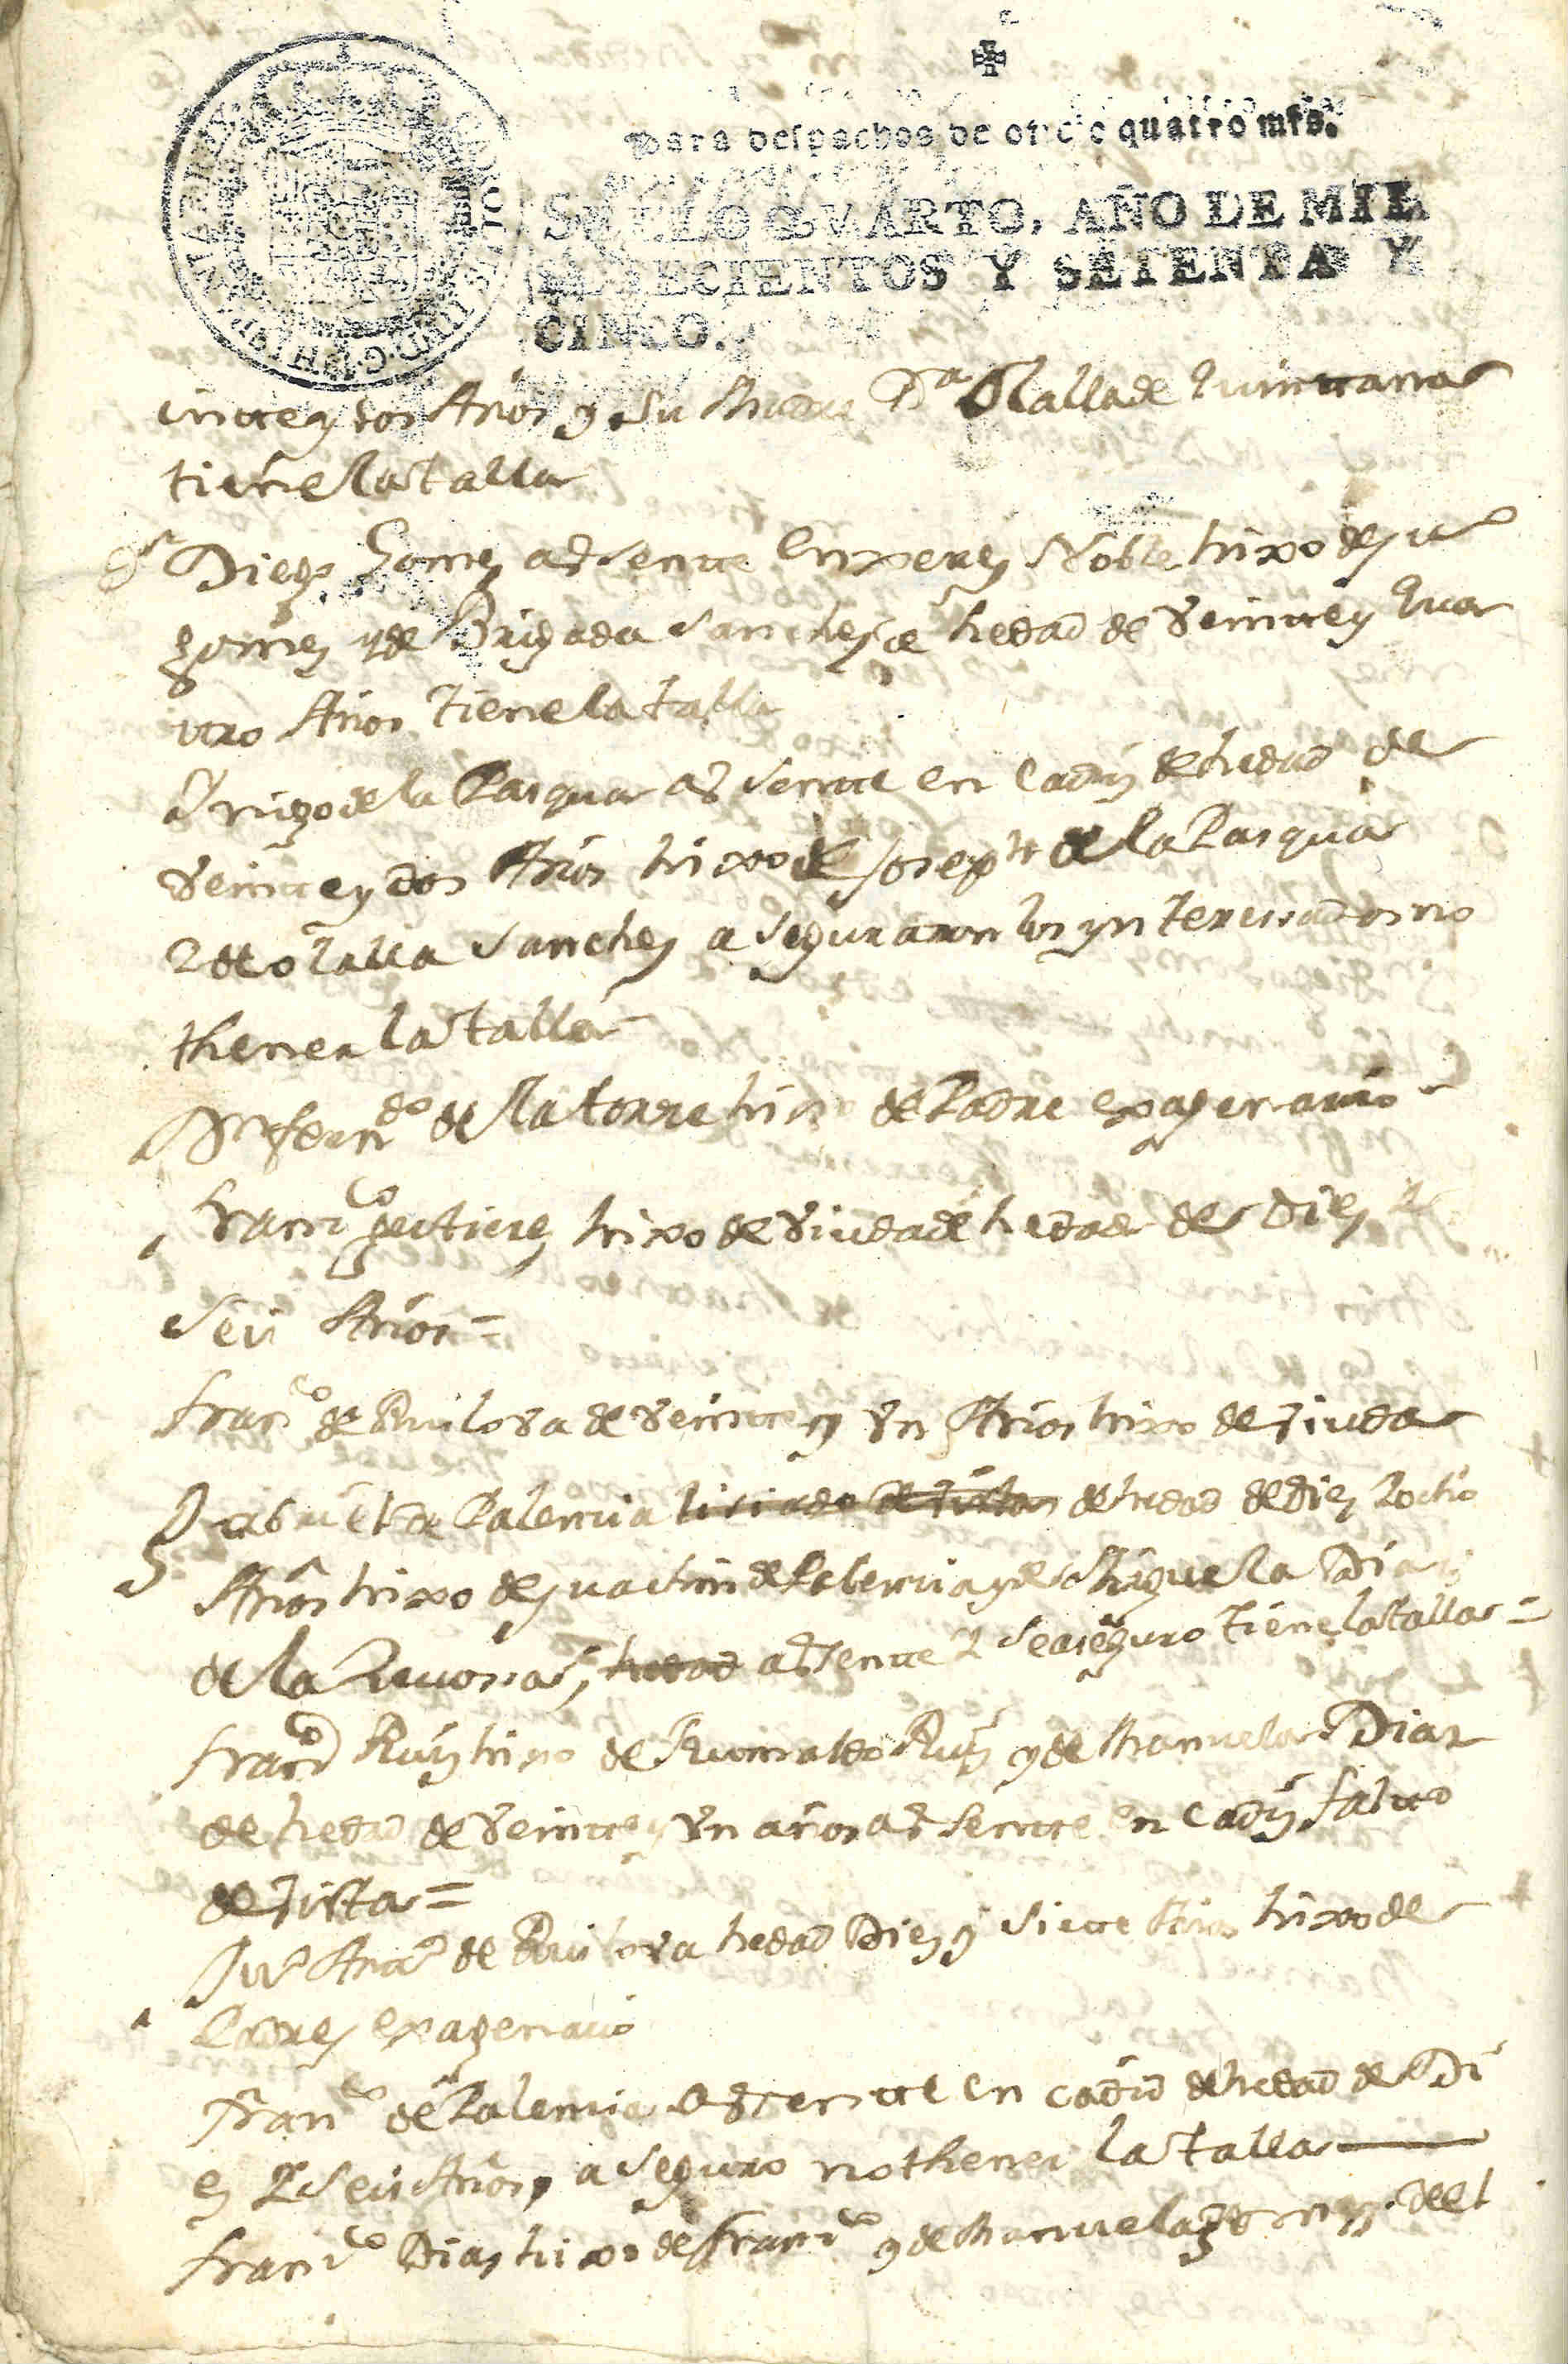 Para despachos de oficio quatro mrs.
SELLO QVARTO, AÑO DE MIL
SETECIENTOS Y SETENTA Y
CINCO.
inttey dos Años y su Madre Da Olalla de Quinttana
tiene la talla
Dn Diego Gomez adsentte en xerez Noble hixo de Jua
gomez y de Brigada Sanchez de hedad de Veintte y qua
ttro Años tiene la talla
Yñigo de la Pasqua adsentte en Cadiz de hedad de
Veintte y dos Años hixo de Joseph de la Pasqua
y de olalla Sanchez aseguraron los ynteresados no
thener la talla
Dn ferndo de la torre hixo de Padre exagenario
Franco gutierez hixo de Viuda de hedad de Diez y
Seis Años =
Franco de Ruilova de Veintte y Vn Años hixo de Viuda
Gabriel de Palencia lisiado de vista de hedad de Diez y ocho
Años hixo de Juachin de Palencia y de Miguela Diaz
de la , hedad adsente y se aseguro tiene la talla =
Franco Ruiz hixo de Rumaldo Ruiz y de Manuela Diaz
de hedad de Veintte y Vn años adsentte en Cadiz falto
de vista =
Jun Anto de Ruilova hedad Diez y Siette Años hixo de
Padres exagenario
Franco de Palencia adsentte en Cadiz de hedad de Di
ez y Seis Años, aseguro no thener la talla
Franco Diaz hixo de Franco y de Manuela